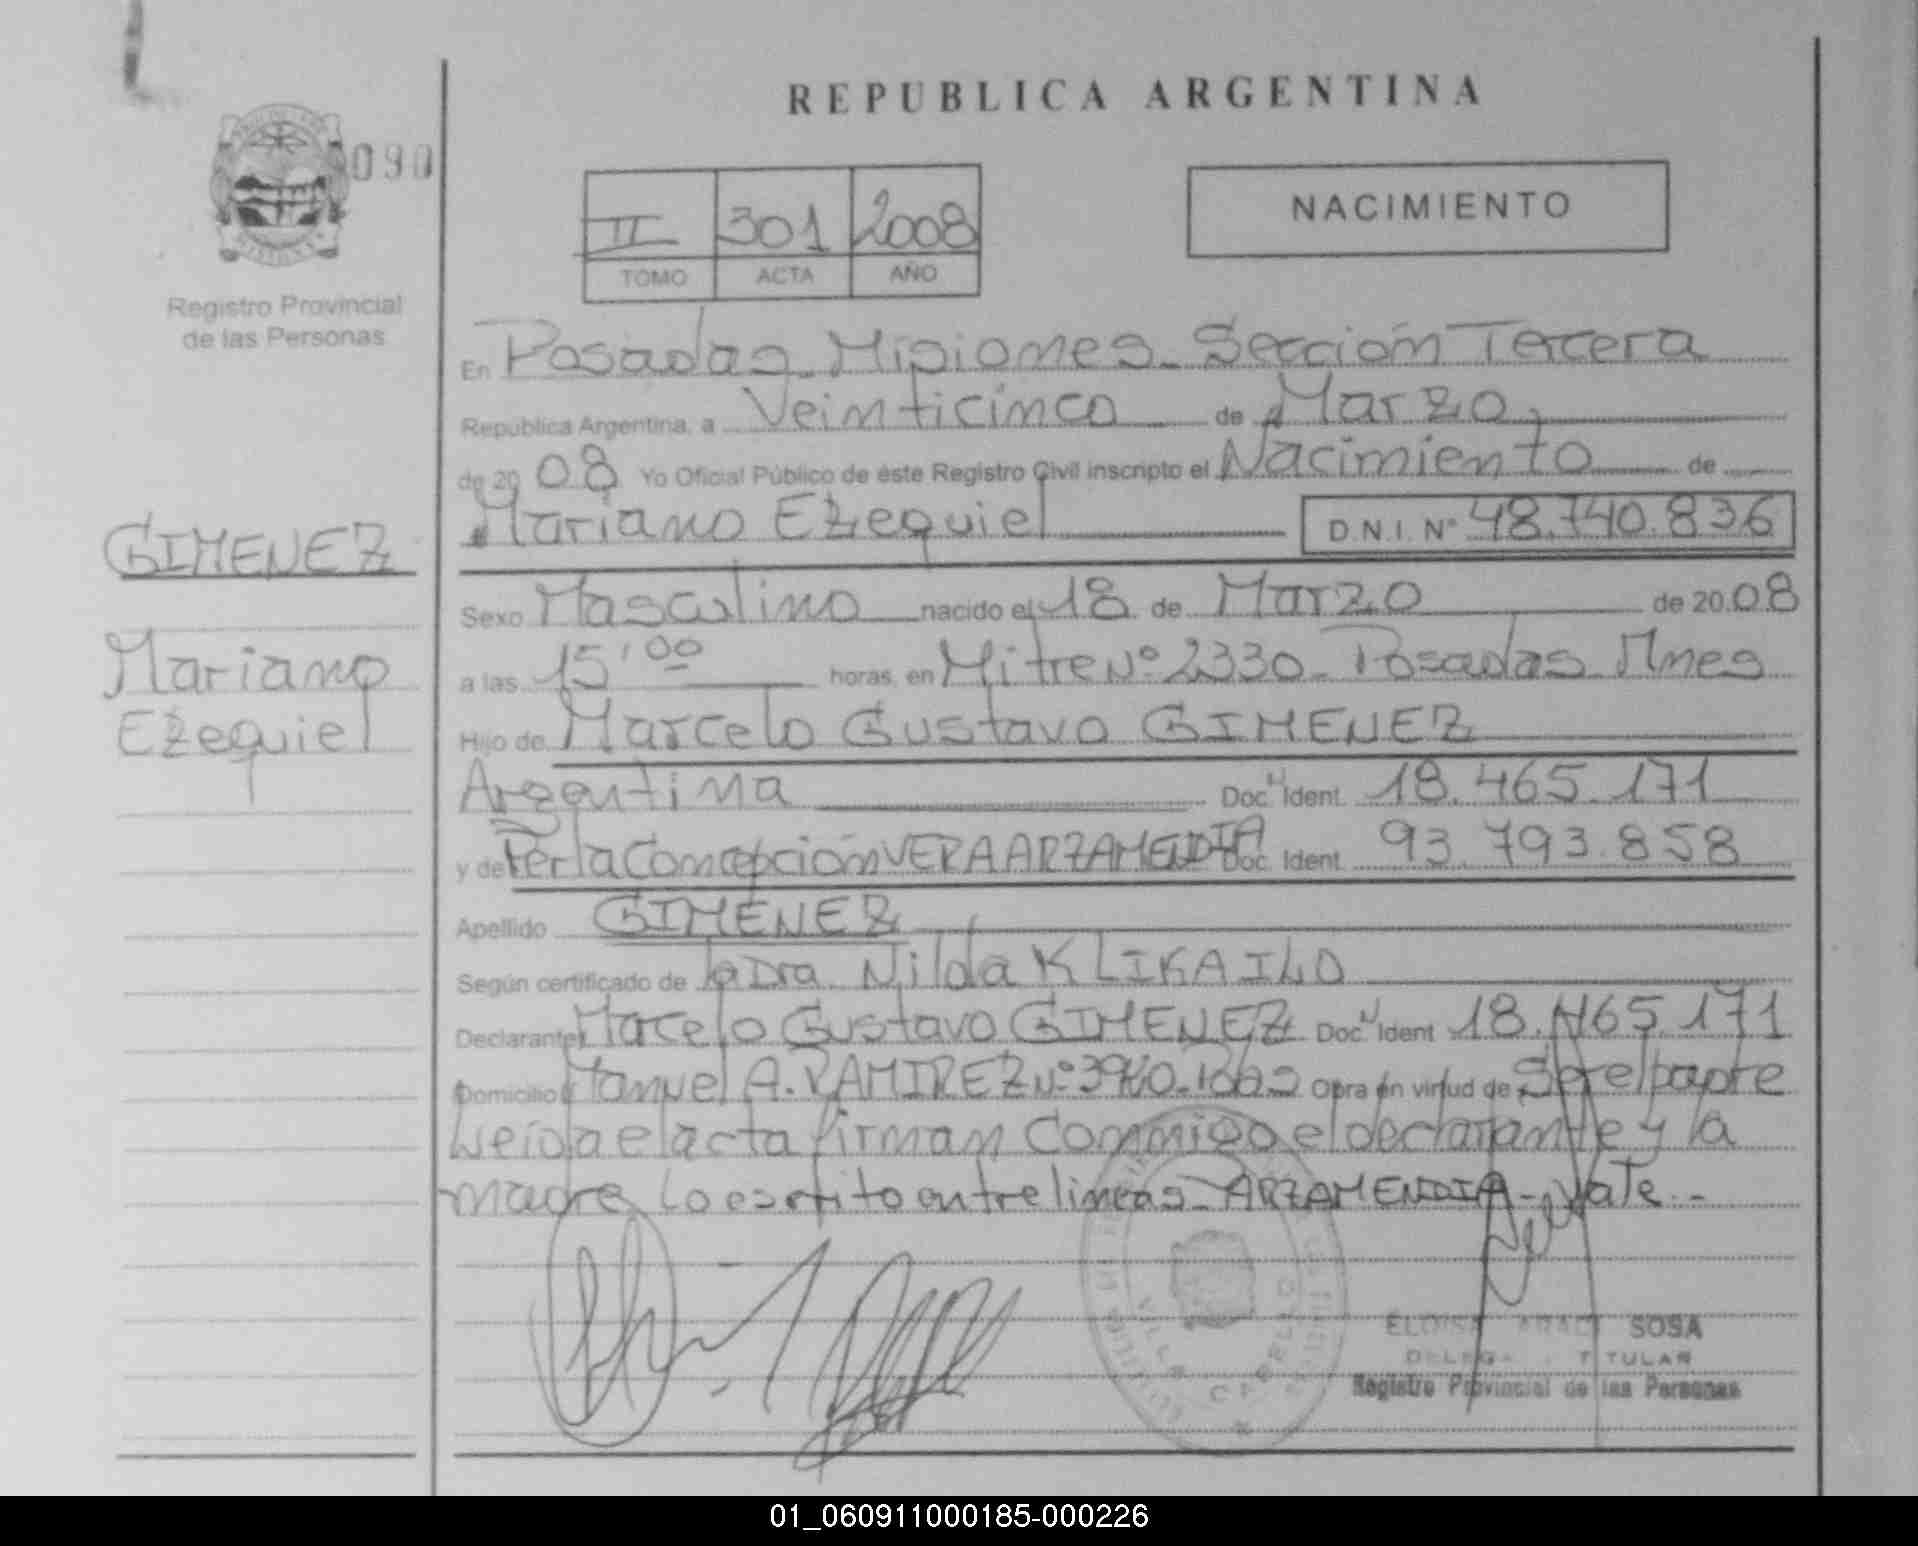 REPUBLICA ARGENTINA
090
II 301 2008
TOMO ACTA AÑO
NACIMIENTO
Registro Provincial
de las Personas
En Posadas Misiones Sección Tercera
Republica Argentina, a Veinticinco de Marzo
de 20 08 Yo Oficial Público de éste Registro Civil inscripto el Nacimiento de
Mariano Ezequiel D.N.I. N° 48.740.836
GIMENEZ
Mariano
Ezequiel
Sexo Masculino nacido el 18 de Marzo de 20 08
a las 15'00 horas, en Mitre N° 2330 Posadas Mnes
Hijo de Marcelo Gustavo GIMENEZ
Argentina Doc. Ident. 18.465.171
y de Perla Concepción VERA ARZAMENDIA Doc. Ident. 93.793.858
Apellido GIMENEZ
Según certificado de la Dra. Nilda KLIKAILO
Declarante Marcelo Gustavo GIMENEZ Doc. Ident 18.465.171
Domicilio Manuel A. RAMIREZ N° Opra en virtud de Ser el padre
Leida el acta firman Conmigo el declarante y la
madre Lo escrito entre lineas ARZAMENDIA Vale.-
VILLA CABELLO
SOSA
TITULAR
Registro Provincial de las Personas
01_060911000185-000226